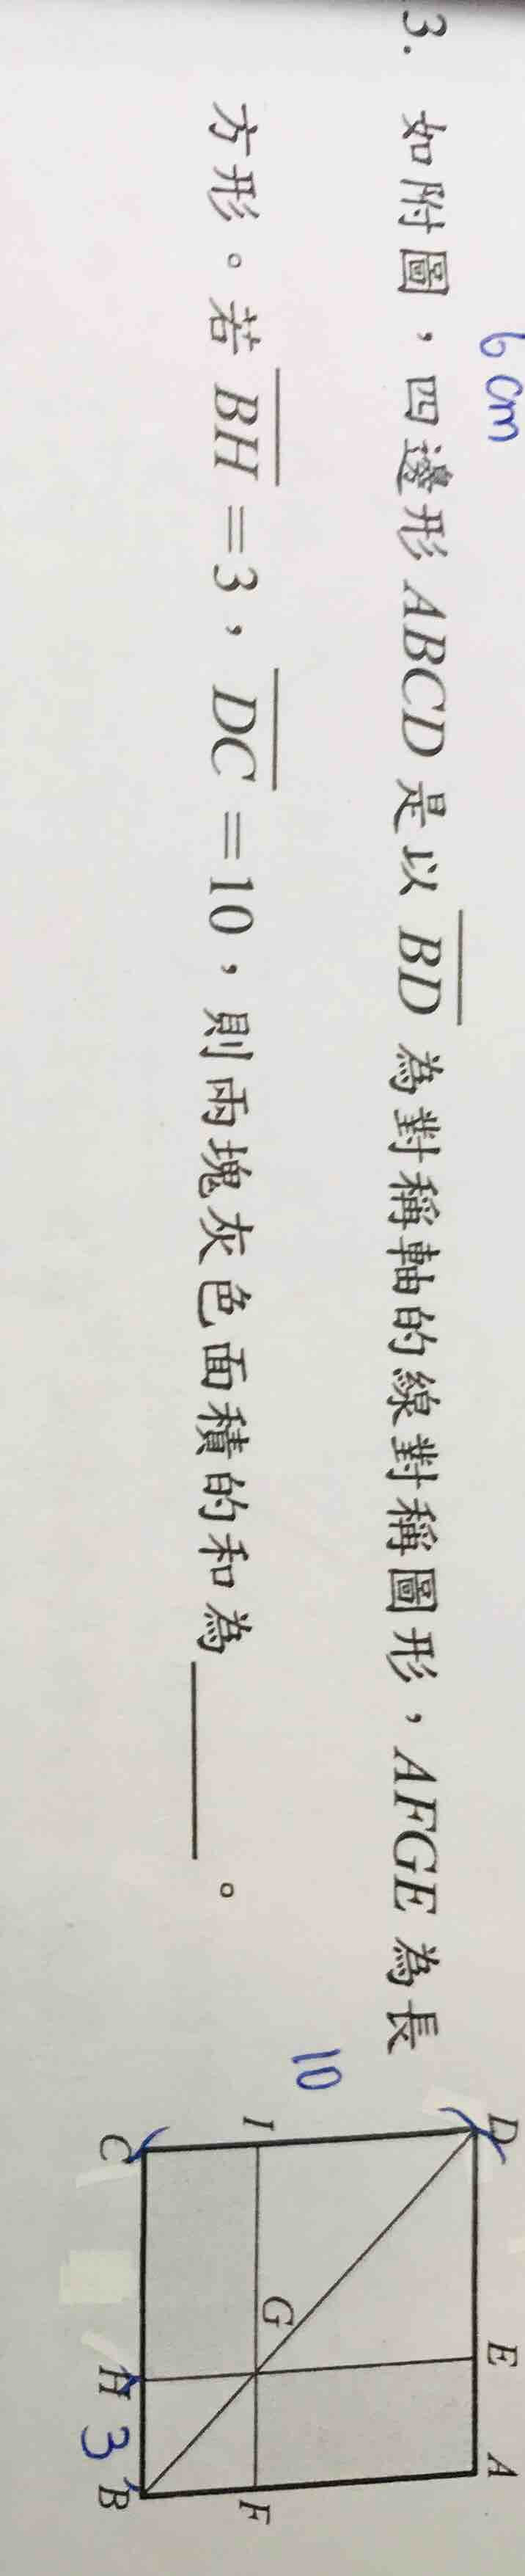 6 cm
3. 如附圖，四邊形 ABCD 是以 BD 為對稱軸的線對稱圖形，AFGE 為長
方形。若 BH =3，DC =10，則兩塊灰色面積的和為＿＿＿。
D E A
10
I G F
C H 3 B